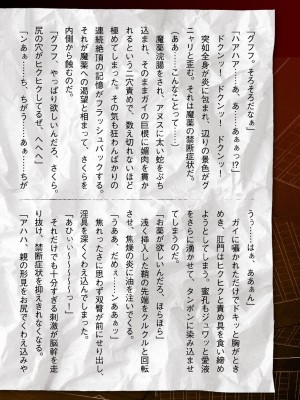 「グフフ。そろそろだなぁ」
「ハアハア……あ、あ……あぁぁっ!?」
ドクンッ！ ドクンッ！ ドクンッ！
突如全身が炎に包まれ、辺りの景色がグ
ニャリと歪む。それは魔薬の禁断症状だ。
（ああ……こんなことって……）
魔薬浣腸をされ、アヌスに太い蛇をぶち
込まれ、そのままガイの巨根に媚肉を貫か
れるという二穴責めで、数え切れないほど
極めてしまった。その気も狂わんばかりの
連続絶頂の記憶がフラッシュバックする。
それが魔薬への渇望と相まって、さくらを
内側から蝕むのだ。
「グフフ、やっぱり欲しいんだろ、さくら。
尻の穴がヒクヒクしてるぜ、へへへ」
「ンあぁ……ち、ちがう……あぁ……ちが
うっ……はぁ、ああぁん」
ガイに囁かれただけでドキッと胸がとき
めき、肛門はヒクヒクと責め具を食い締め
ようとしてしまう。蜜孔もジュワッと愛液
をさらに湧かせて、タンポンに染み込ませ
てしまうのだ。
「お薬が欲しいんだろ、ほらほら」
浅く挿入した鞘の先端をクルクルと回転
させ、焦燥の炎に油を注いでくる。
「うああ、だめぇ……ンああぁッ」
焦れったさに思わず双臀が前にせり出し、
淫具を深くくわえ込んでしまった。
「あひぃぃ〜〜〜〜〜っ！」
それだけでも十分すぎる刺激が脳幹を走
り抜け、禁断症状を抑えきれなくなる。
「アハハ、親の形見をお尻でくわえ込みや